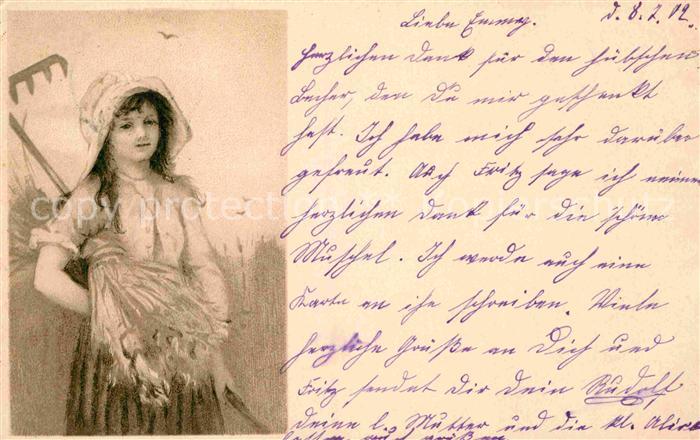 Liebe Emmy. d. 8.2.02.
Herzlichen Dank für den hübschen
Becher, den Du mir geschenkt
hast. Ich habe mich sehr darüber
gefreut. Auch Fritz sage ich meinen
herzlichen Dank für die schöne
Muschel. Ich werde auch eine
Karte an ihn schreiben. Viele
herzliche Grüße an Dich und
Fritz sendet Dir Dein Rudolf,
Deine l. Mutter und die kl. Alice
lassen auch grüßen